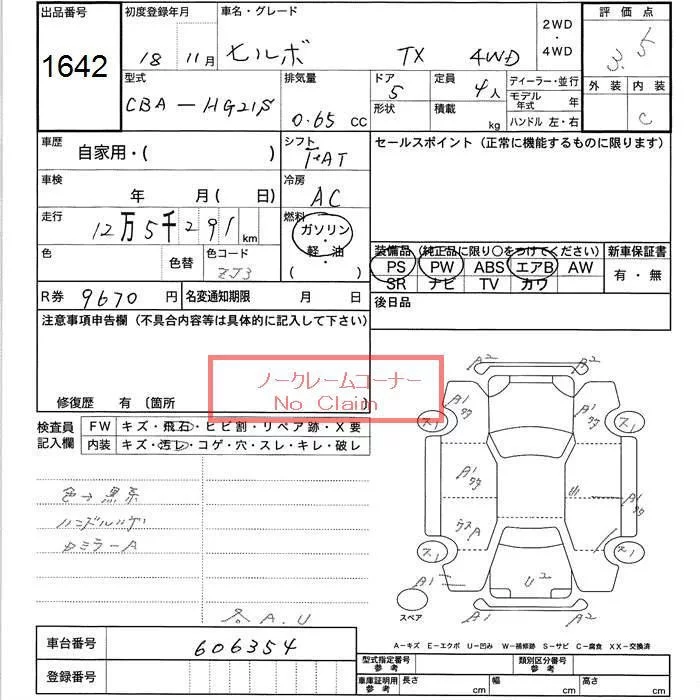 出品番号 初度登録年月 車名・グレード 2WD・4WD 評価点
1642 18 11月 モルボ TX 4WD 3.5
型式 排気量 ドア 定員 ディーラー・並行 外装 内装
CBA-HG21S 0.65 CC 5 4人 モデル年式 年 C
形状 積載 kg ハンドル 左・右
車歴 自家用・( ) シフト セールスポイント(正常に機能するものに限ります)
車検 年 月(日) 冷房 AC
走行 12万5千291km 燃料 ガソリン・軽油・( )
色 色替 色コード ZJ3
装備品(純正品に限り○をつけてください) 新車保証書
PS PW ABS エアB AW 有・無
SR ナビ TV カワ
R券 9670円 名変通知期限 月 日 後日品
注意事項申告欄(不具合内容等は具体的に記入して下さい)
ノークレームコーナー
No Claim
修復歴 有 〔箇所
検査員記入欄 FW キズ・飛石・ヒビ割・リペア跡・X要
内装 キズ・汚レ・コゲ・穴・スレ・キレ・破レ
色→黒系
ハンドルハゲ
ミラーA
各A.U
A2 A2
A1 A1
ス1 ス1
A1 A1
ス1 ス1
A1 U2
A1 A2
スペア
A-キズ E-エクボ U-凹み W-補修跡 S-サビ C-腐食 XX-交換済
車台番号 606354 型式指定番号 参考 類別区分番号 参考
登録番号 車庫証明用 参考 長さ cm 幅 cm 高さ cm